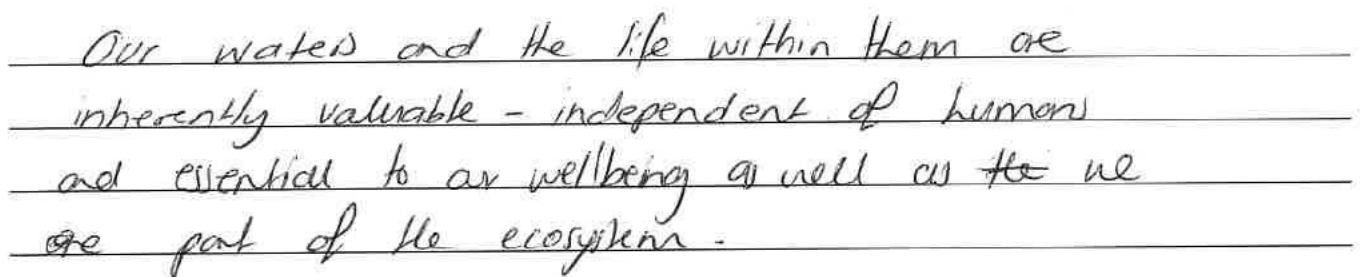 Our waters and the life within them are
inherently valuable - independent of humans
and essential to our wellbeing as well as ~~the~~ we
are part of the ecosystem.